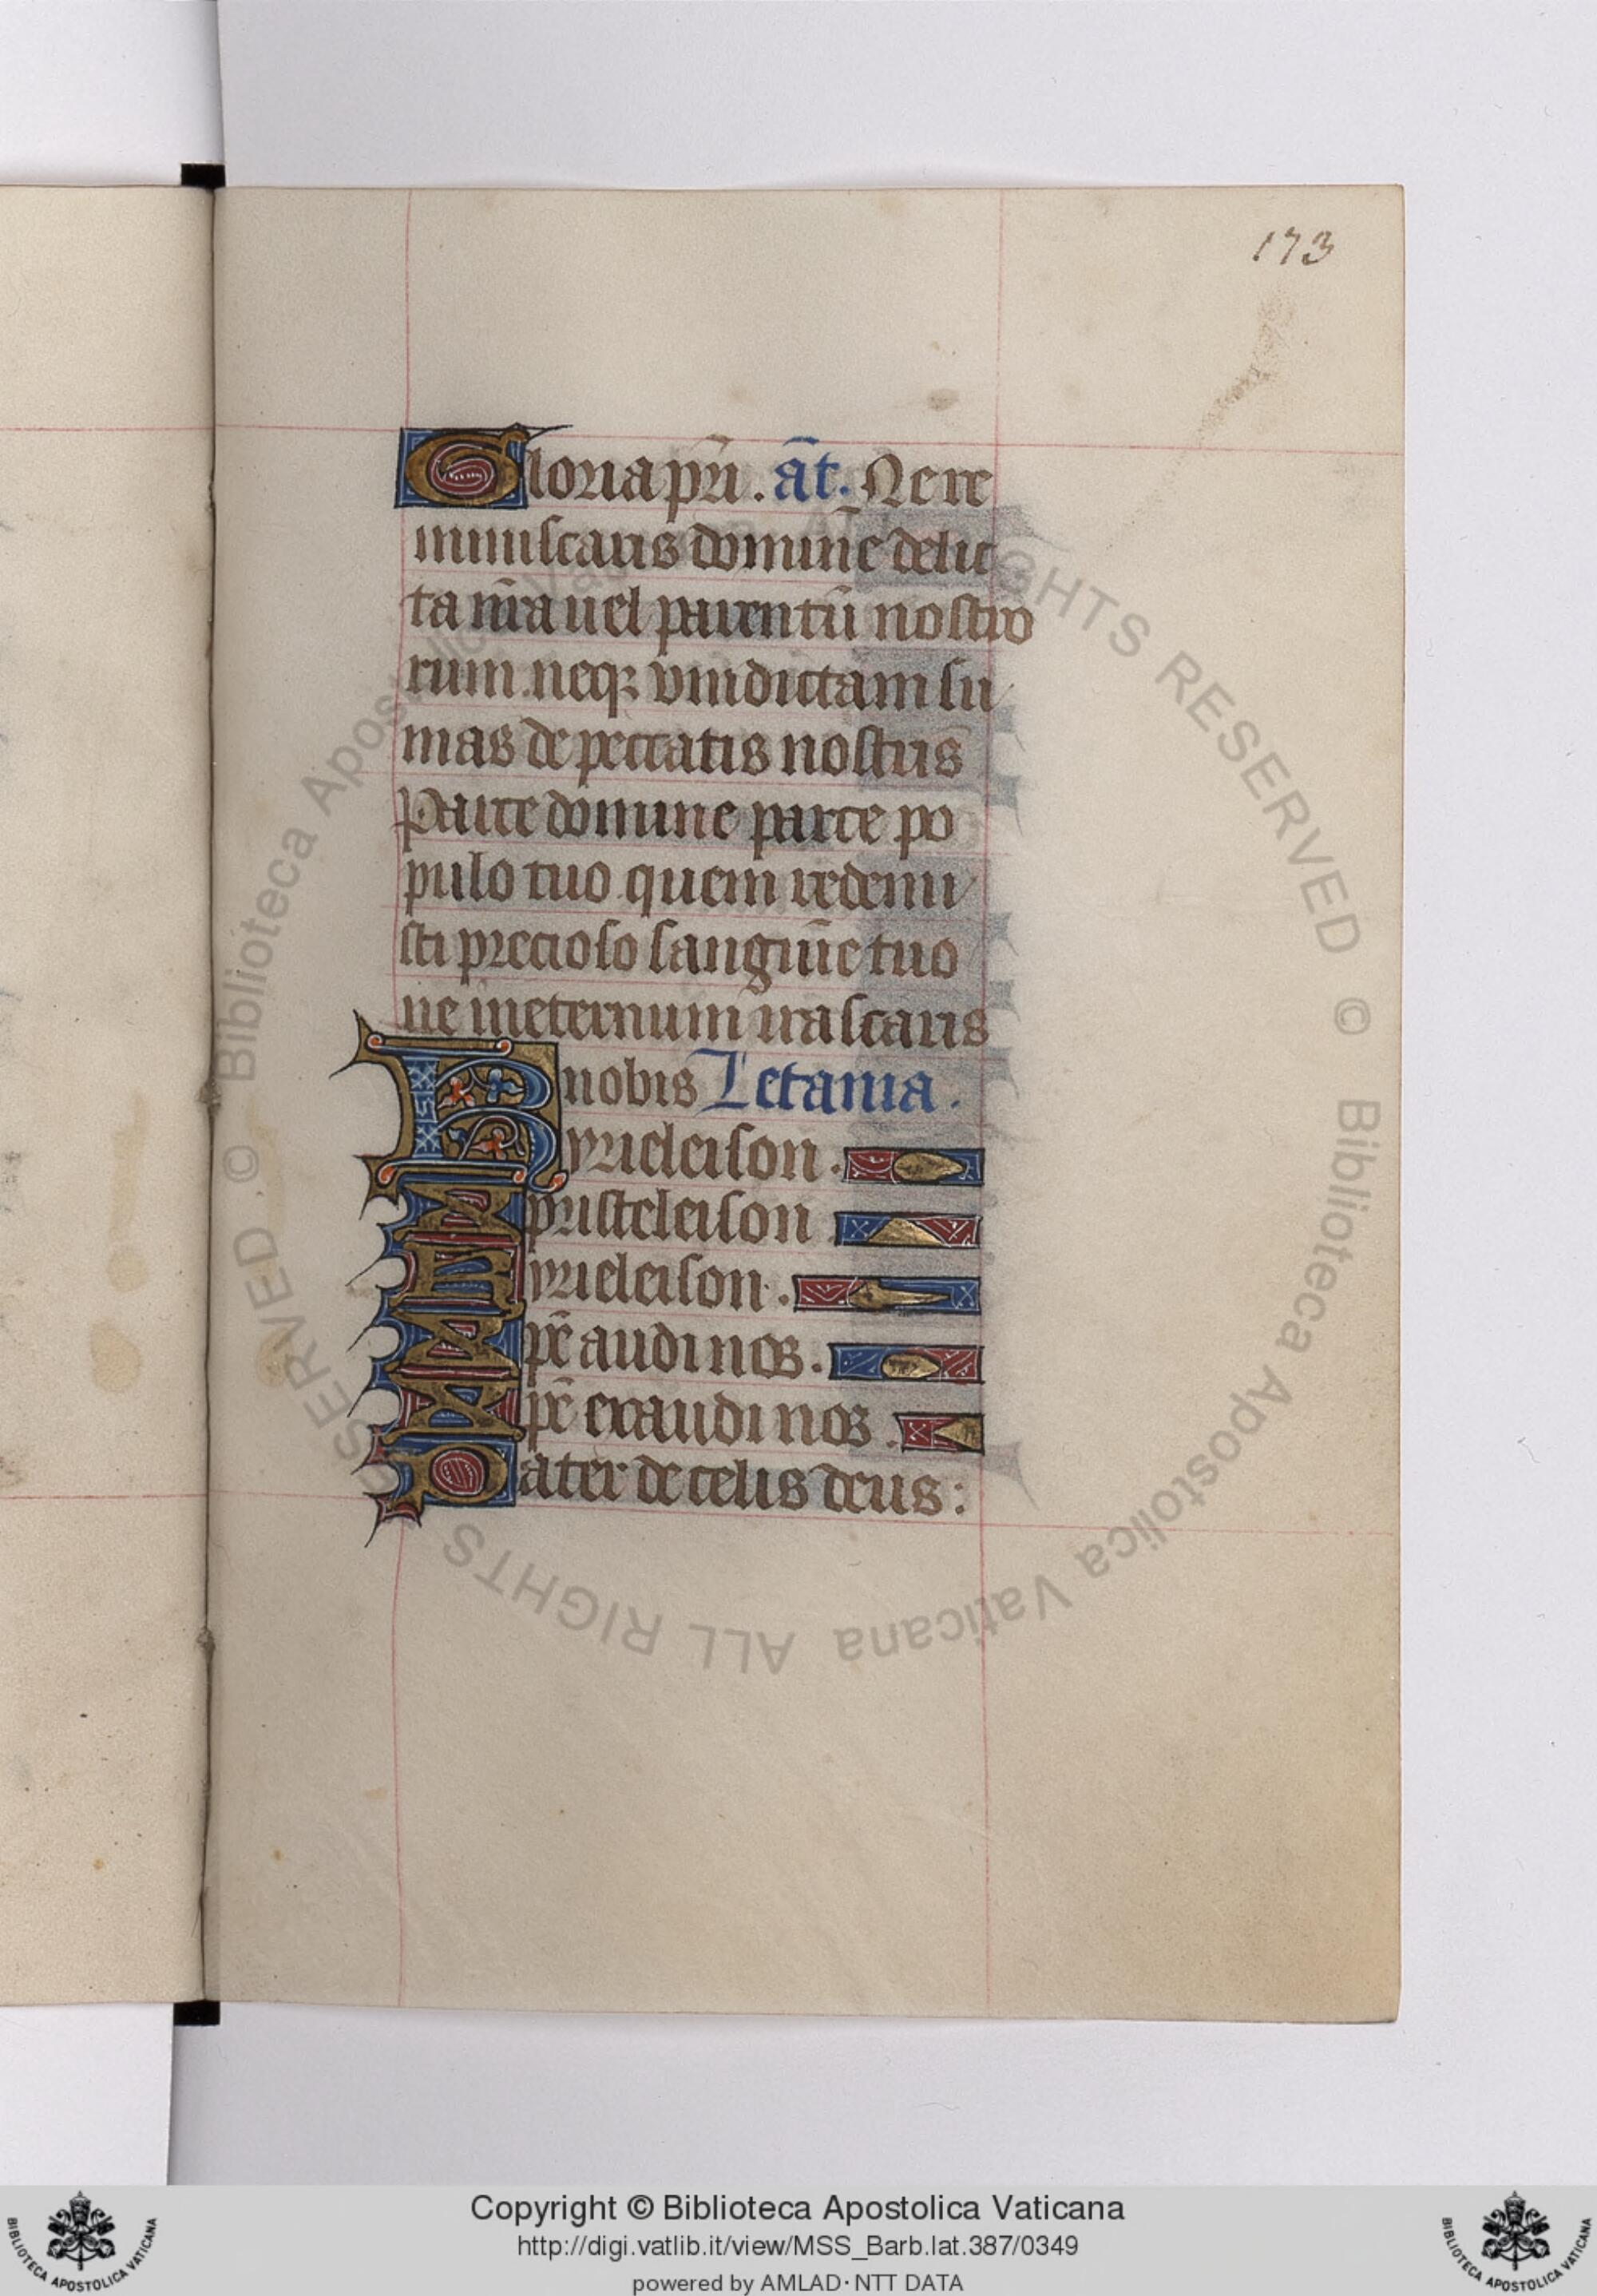 173
Gloria pr̄i. ān̄t. Ne re
miniscaris domine delic
ta nr̄a uel parentū nostro
rum neqꝫ vindictam su
mas de peccatis nostris
Parce domine parce po
pulo tuo quem redemi
sti precioso sanguīe tuo
ne ineternum irascaris
nobis Letania.
Kyrieleison.
xpristeleison
kyrieleison.
xp̄e audi nos.
xp̄e exaudi nos.
Pater de celis deus:
© Biblioteca Apostolica Vaticana ALL RIGHTS RESERVED © Biblioteca Apostolica Vaticana ALL RIGHTS RESERVED
Copyright © Biblioteca Apostolica Vaticana
http://digi.vatlib.it/view/MSS_Barb.lat.387/0349
powered by AMLAD·NTT DATA
BIBLIOTECA APOSTOLICA VATICANA
BIBLIOTECA APOSTOLICA VATICANA